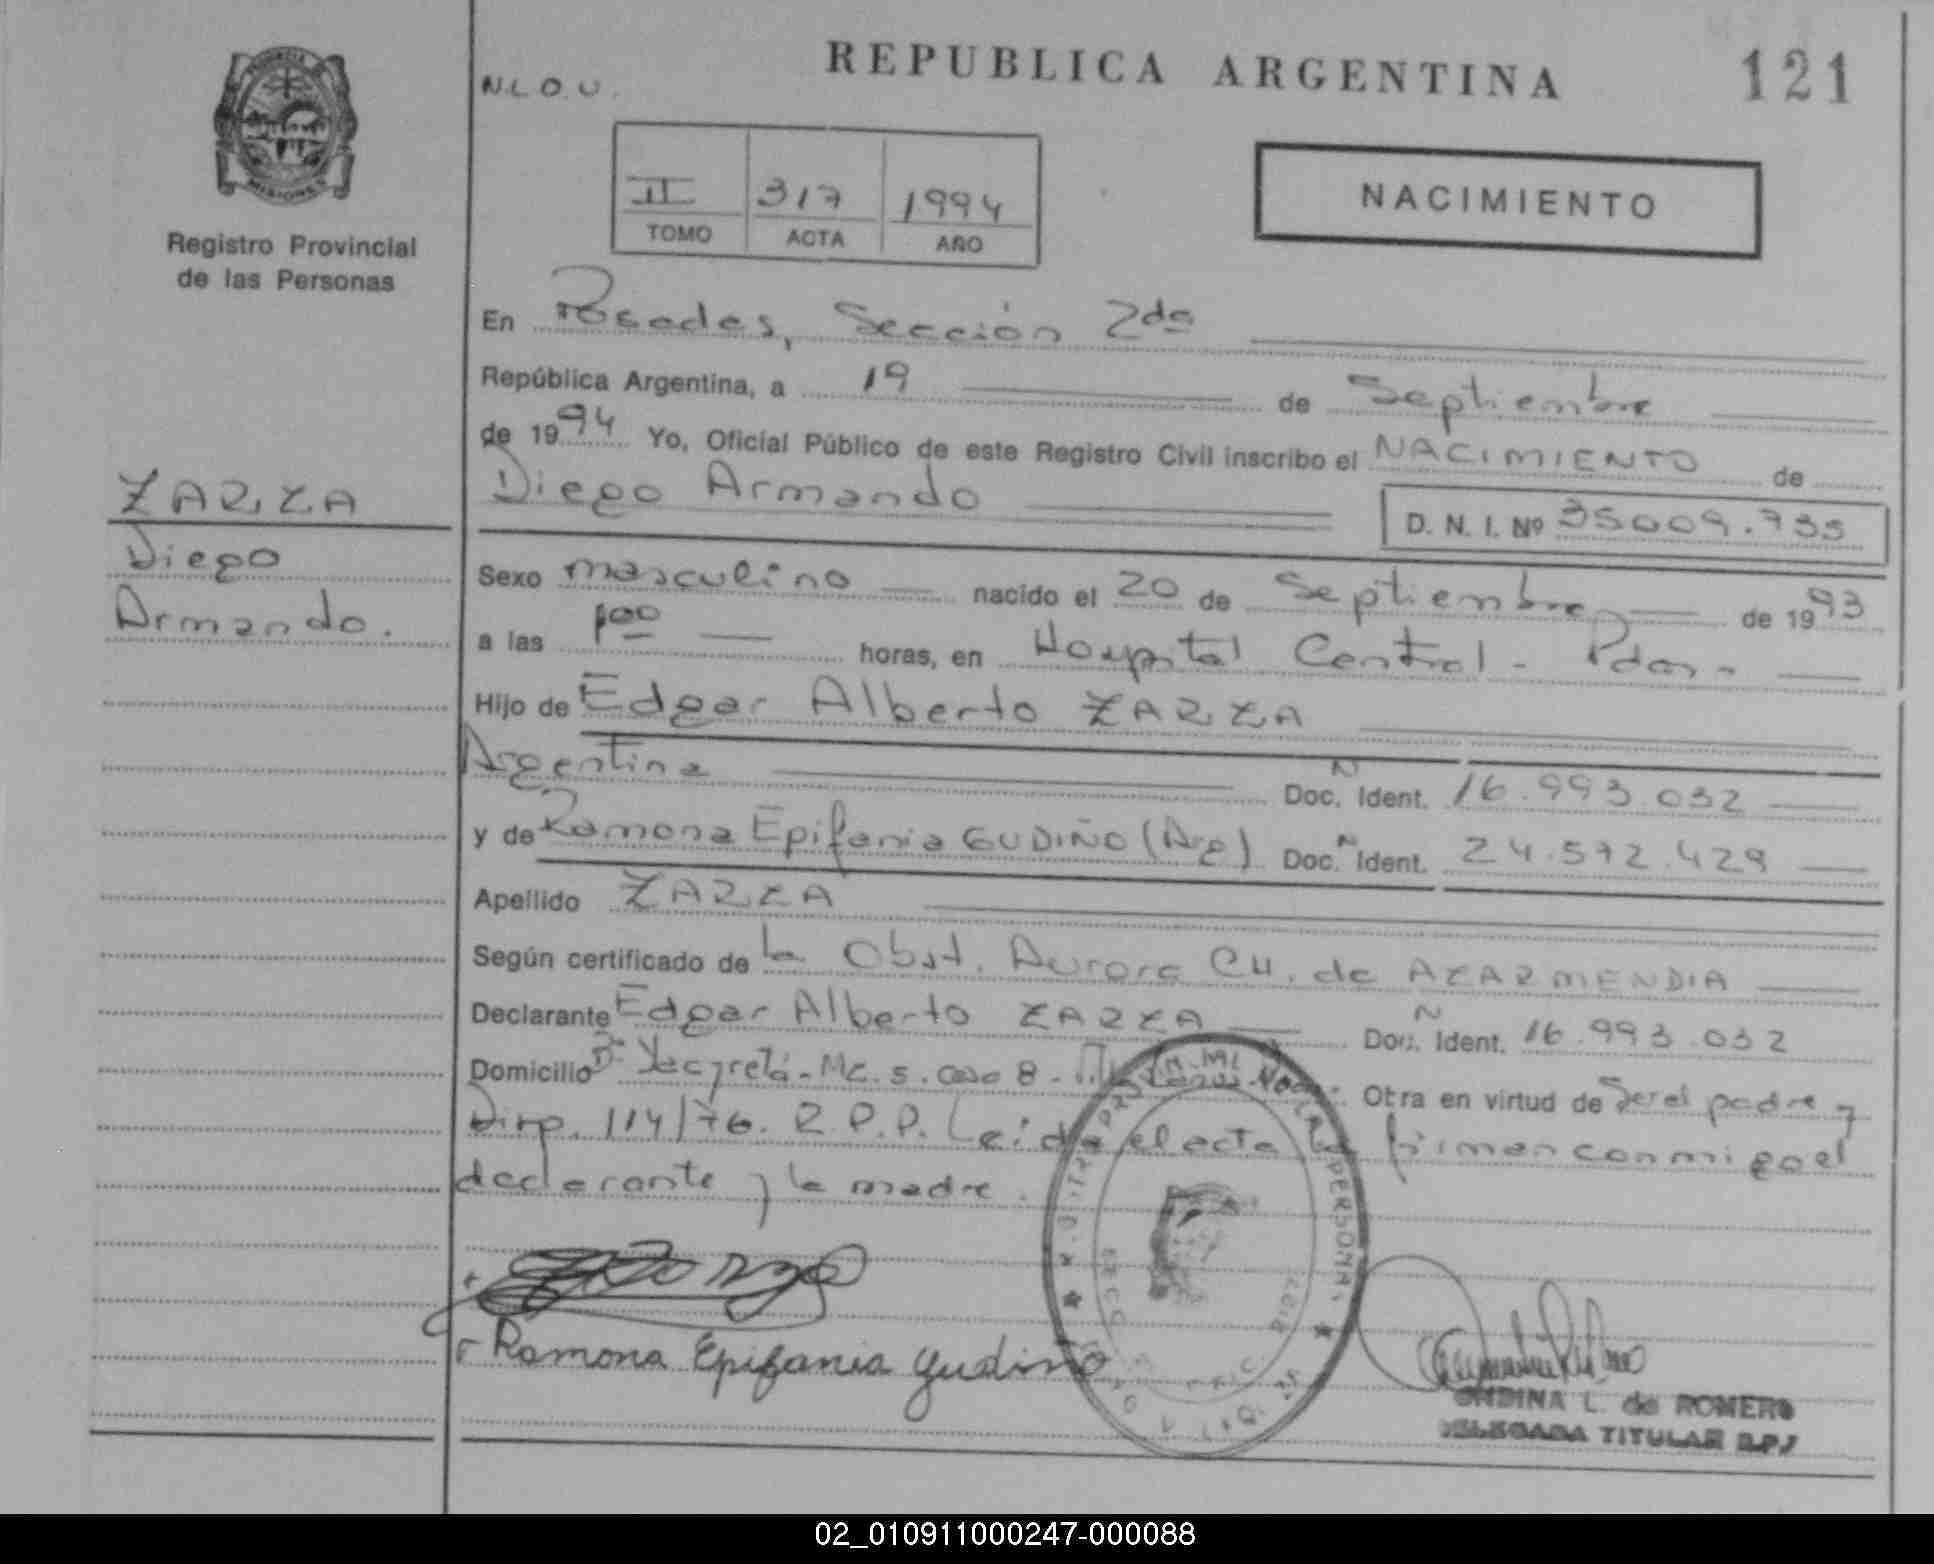 REPUBLICA ARGENTINA
121
N.L.O.U.
PROVINCIA DE
MISIONES
Registro Provincial
de las Personas
II 317 1994
TOMO ACTA AÑO
NACIMIENTO
En Posadas, Sección 2da
República Argentina, a 19 de Septiembre
de 1994 Yo, Oficial Público de este Registro Civil inscribo el NACIMIENTO de
Diego Armando
D. N. I. Nº 35009.735
ZARZA
Diego
Armando.
Sexo masculino nacido el 20 de Septiembre de 1993
a las horas, en Hospital Central - Pdas.
Hijo de Edgar Alberto ZARZA
Argentina Doc. Ident. 16.993.032
y de Ramona Epifania GUDIÑO (Arg) Doc. Ident. 24.572.429
Apellido ZARZA
Según certificado de la Obst. Aurora CH. de AZARMENDIA
Declarante Edgar Alberto ZARZA Doc. Ident. 16.993.032
Domicilio Bº Yacyretá - Mz. 5. casa 8 - Otra en virtud de Ser el padre y
Disp. 114/76. R.P.P. Leída el acta la firman conmigo el
declarante y la madre.
Ramona Epifania Gudiño
ONDINA L. de ROMERO
DELEGADA TITULAR R.P.P
02_010911000247-000088